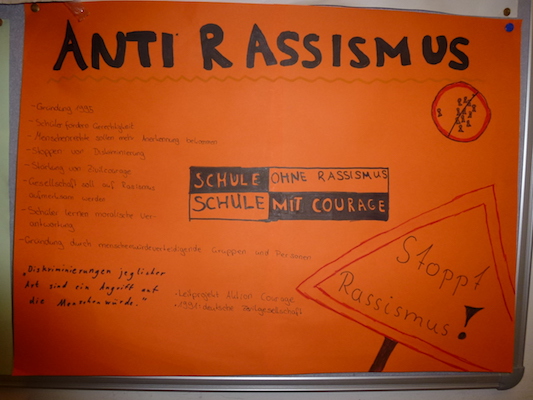 ANTI RASSISMUS
- Gründung 1995
- Schüler fordern Gerechtigkeit
- Menschenrechte sollen mehr Anerkennung bekommen
- Stoppen von Diskriminierung
- Stärkung von Zivilcourage
- Gesellschaft soll auf Rassismus
aufmerksam werden
- Schüler lernen moralische Ver-
antwortung
- Gründung durch menschenwürdeverteidigende Gruppen und Personen
SCHULE OHNE RASSISMUS
SCHULE MIT COURAGE
„Diskriminierungen jeglicher
Art sind ein Angriff auf
die Menschenwürde."
Leitprojekt Aktion Courage
Stoppt
Rassismus!